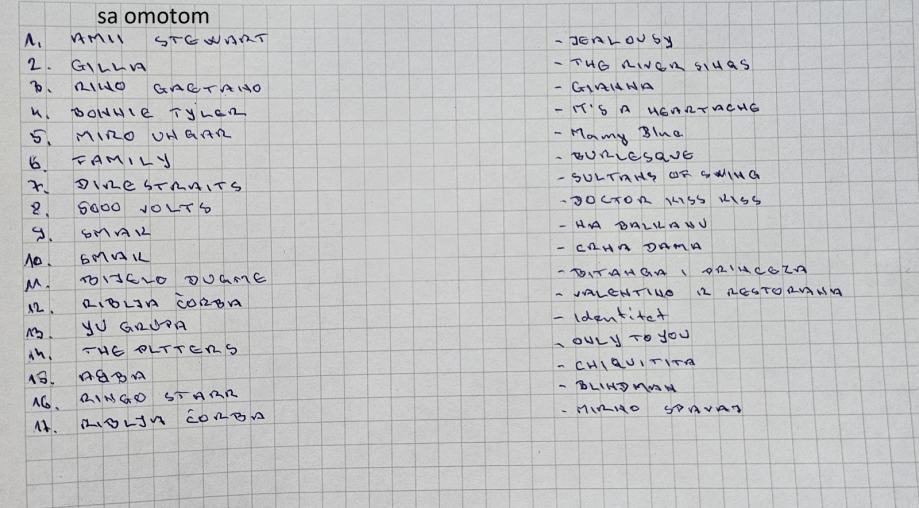 sa omotom
1. AMII STEWART - JEALOUSY
2. GILLA - THE RIVER SINGS
3. RINO GAETANO - GIANNA
4. BONNIE TYLER - IT'S A HEARTACHE
5. MIRO UNGAR - Mamy Blue
6. FAMILY - BURLESQUE
7. DIRE STRAITS - SULTANS OF SWING
8. 5000 VOLTS - DOCTOR KISS KISS
9. SMAK - NA BALKANU
10. SMAK - CRNA DAMA
11. BIJELO DUGME - BITANGA I PRINCEZA
12. RIBLJA ČORBA - VALENTINO IZ RESTORANA
13. YU GRUPA - Identitet
14. THE PLTTERS - ONLY TO YOU
15. ABBA - CHIQUITITA
16. RINGO STARR - BLINDMAN
17. RIBLJA ČORBA - MIRNO SPAVAJ